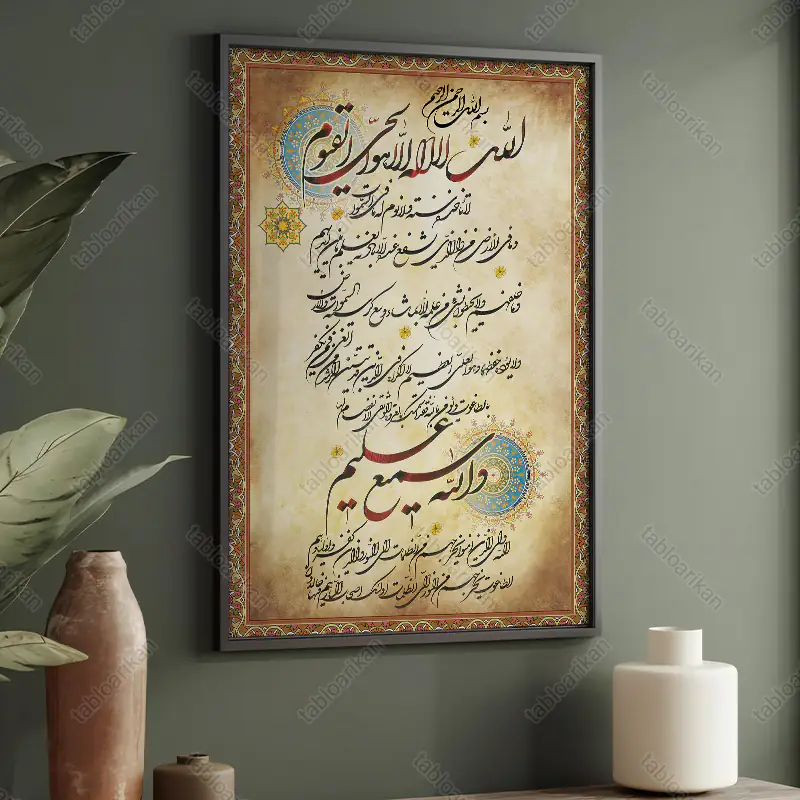 بسم الله الرحمن الرحیم
الله لا اله الا هو الحی القیوم
لا تاخذه سنة ولا نوم له ما فی السموات
وما فی الارض من ذا الذی یشفع عنده الا باذنه یعلم ما بین ایدیهم
وما خلفهم ولا یحیطون بشیء من علمه الا بما شاء وسع کرسیه السموات والارض
ولا یؤده حفظهما وهو العلی العظیم لا اکراه فی الدین قد تبین الرشد من الغی فمن یکفر
بالطاغوت ویؤمن بالله فقد استمسک بالعروة الوثقی لا انفصام لها
والله سمیع علیم
الله ولی الذین آمنوا یخرجهم من الظلمات الی النور والذین کفروا اولیاؤهم
الطاغوت یخرجونهم من النور الی الظلمات اولئک اصحاب النار هم فیها خالدون
tabloarkan